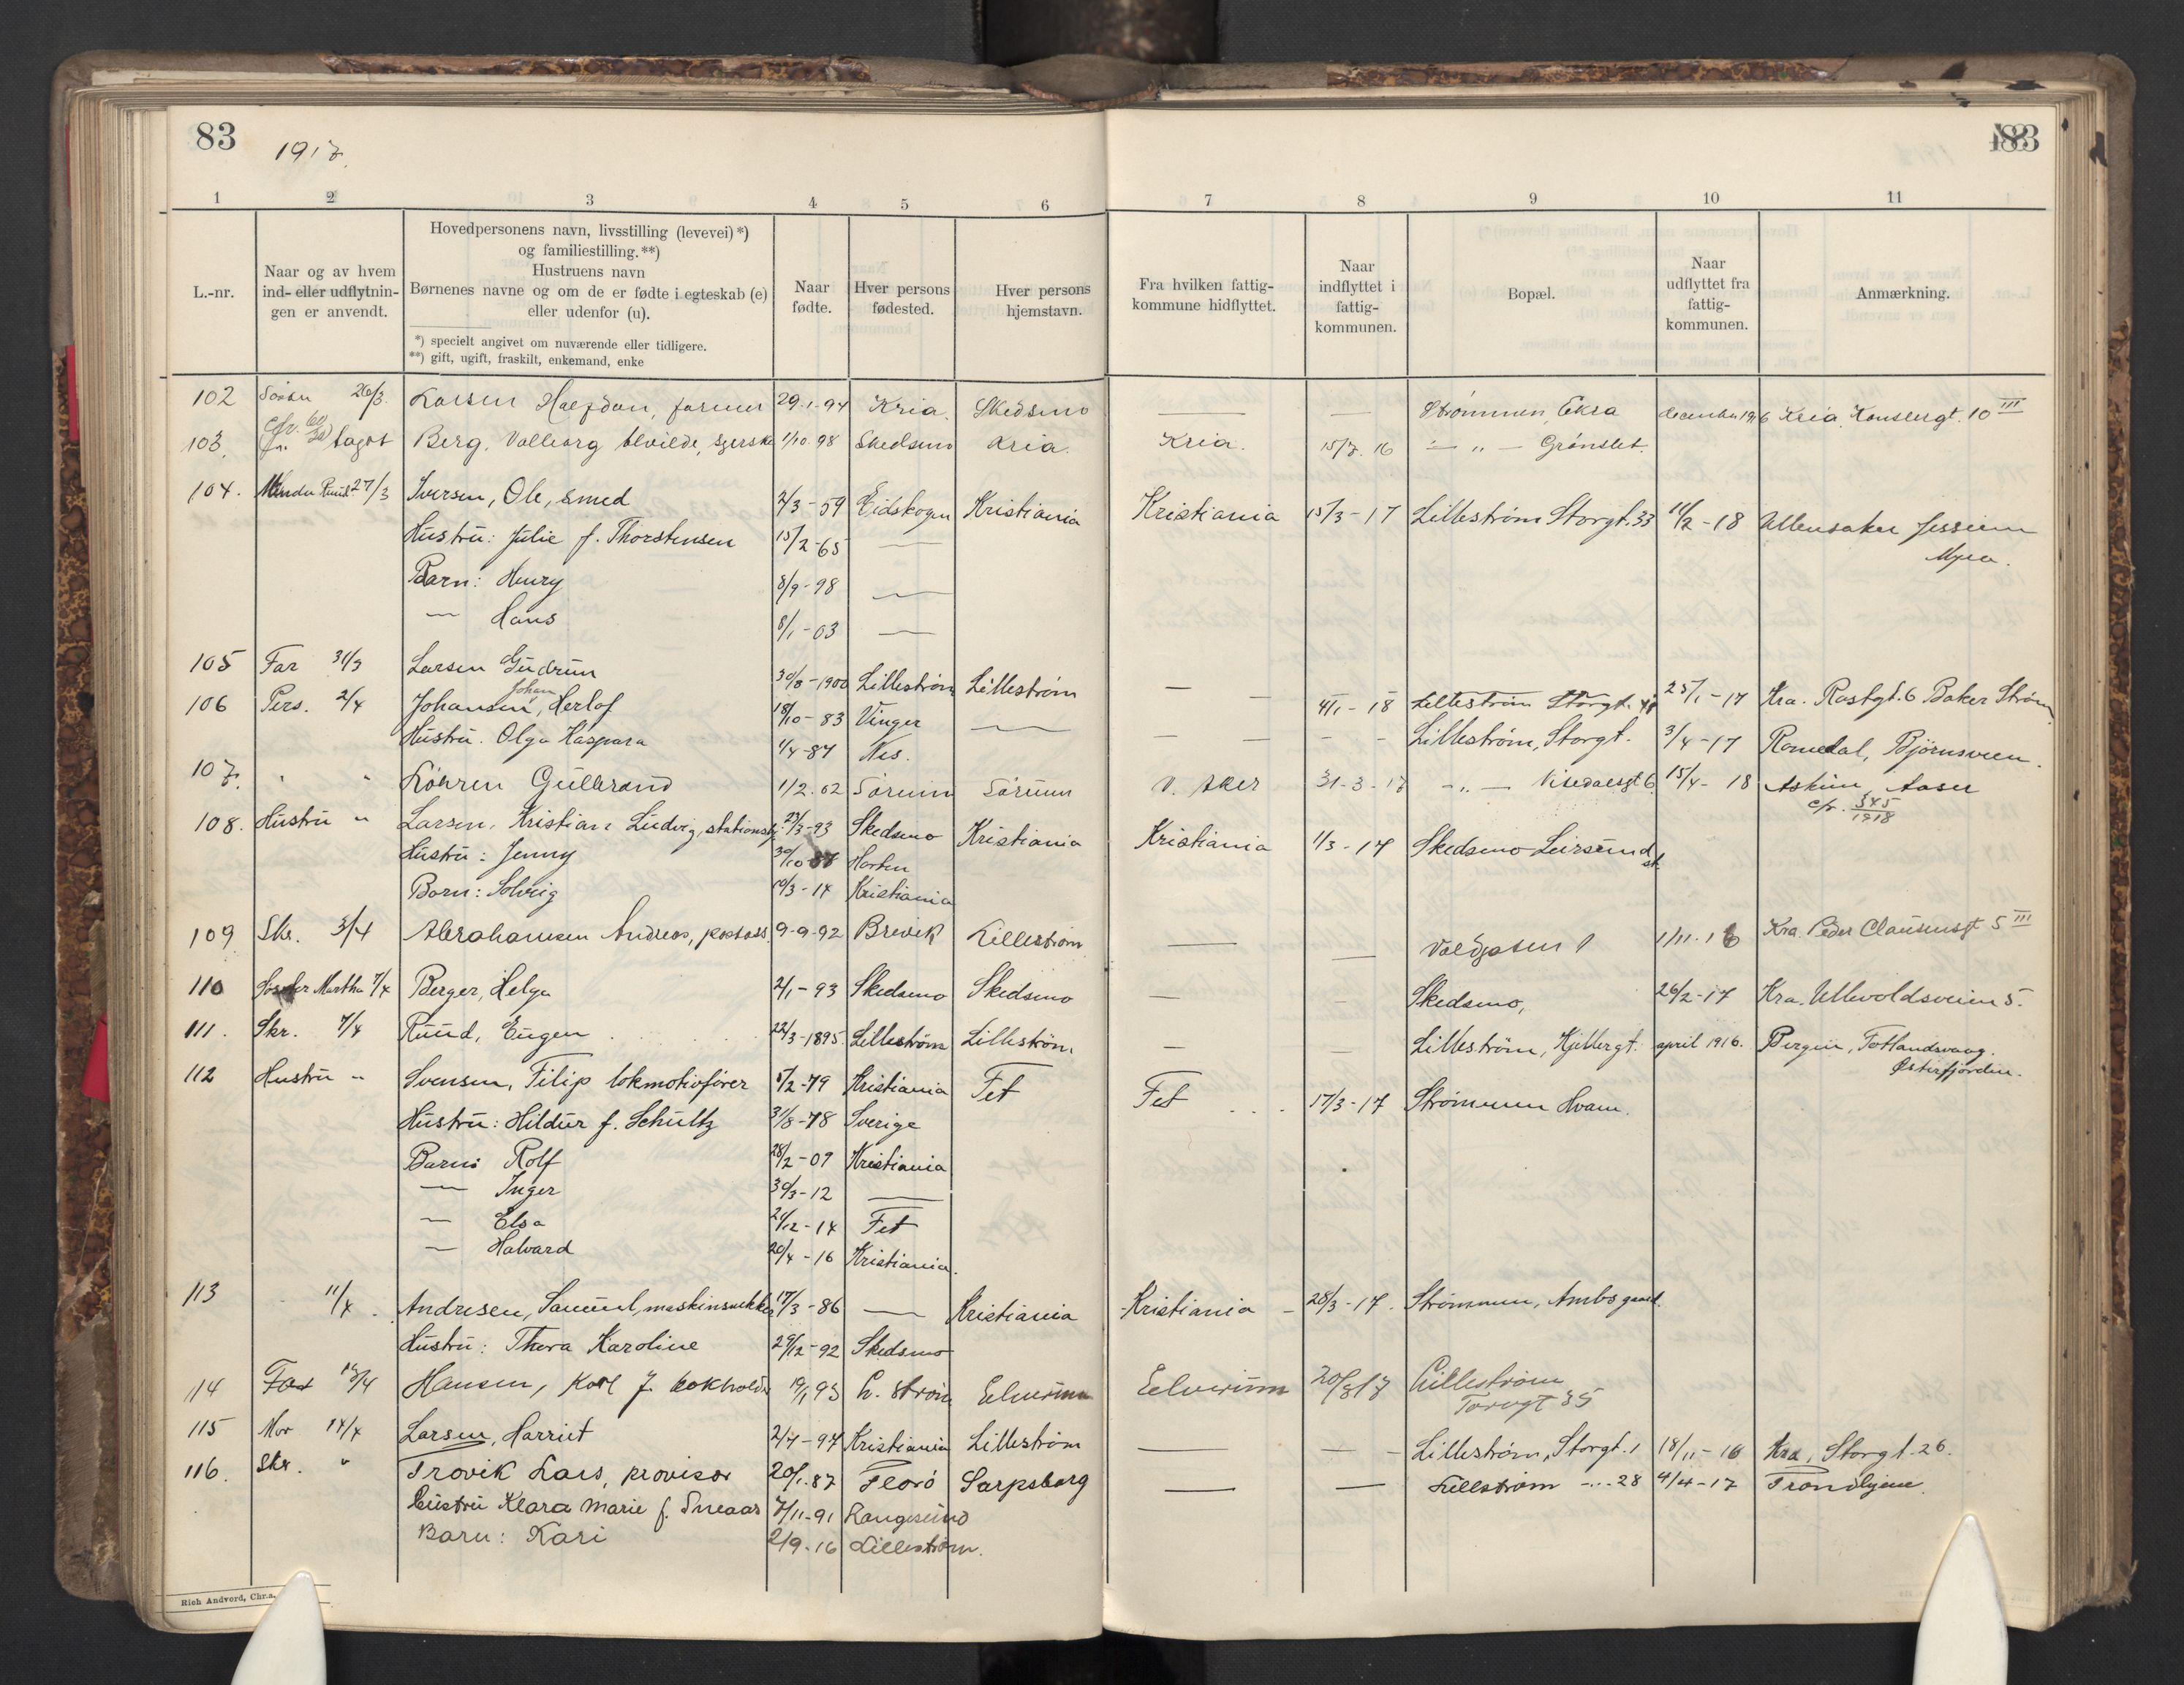 83
1917.
183
1 2 3 4 5 6 7 8 9 10 11
L.-nr.
Naar og av hvem
ind- eller udflytnin-
gen er anvendt.
Hovedpersonens navn, livsstilling (levevei) *)
og familiestilling. **)
Hustruens navn
Børnenes navne og om de er fødte i egteskab (e)
eller udenfor (u).
*) specielt angivet om nuværende eller tidligere.
**) gift, ugift, fraskilt, enkemand, enke
Naar
fødte.
Hver persons
fødested.
Hver persons
hjemstavn.
Fra hvilken fattig-
kommune hidflyttet.
Naar
indflyttet i
fattig-
kommunen.
Bopæl.
Naar
udflyttet fra
fattig-
kommunen.
Anmærkning.
102 26/3 Larsen Halfdan, 29-1-94 Kria. Skedsmo — — Strømmen, Eksa december 1916 Kria. Konsbergt. 10 III
103. Berg, Valborg 1/10.98 Skedsmo Kria. Kria. 15/7.16 — " —
104. 27/3 Iversen, Ole, smed 2/3-59 Eidskogen Kristiania Kristiania 15/3-17 Lillestrøm Storgt. 33 14/2-18 Ullensaker Jessum
Myra.
Hustru: Julie f. Thorstensen 15/2-65 —
Barn: Henry 8/9-98 —
— Hans 8/1-03 —
105 Far 31/3 Larsen Gudrun 30/8-1900 Lillestrøm Lillestrøm — — Lillestrøm Storgt. 25/1-17 Kra. Rostgt. 6 Baker Strøm.
106 Pers. 2/4 Johansen, Johan Herlof 18/10-83 Vinger — — — Lillestrøm, Storgt. 3/4-17 Romedal, Bjørnsveen.
Hustru. Olga Kaspara 1/4-87 Nes.
107. " " Løkren Gulbrand 1/2.02 Sørum Sørum V. Aker 31-3-17 — " — 15/4-18 Askim, Aaser
cfr. 345/1918
108. Hustru " Larsen, Kristian Ludvig, 27/3-93 Skedsmo Kristiania Kristiania 1/3-17 Skedsmo Leirsund st.
Hustru: Jenny Horten
Barn: Solveig 19/3-14 Kristiania
109 Skr. 3/4 Abrahamsen Andreas, postass. 9-9-92 Brevik Lillestrøm — — Voldgaten 1 1/11.16 Kra. Peder Clausensgt 5 III
110 Søster Martha 7/4 Berger, Helga 2/1-93 Skedsmo Skedsmo — — Skedsmo, 26/2-17 Kra. Ullevoldsveien 5.
111. Skr. 7/4 Ruud, Eugen 22/3-1895. Lillestrøm Lillestrøm — — Lillestrøm, Kjellergt. april 1916. Bergen, Totlandsvaag.
Østerfjorden.
112 Hustru " Svensen, Filip lokmotivfører 5/2-79 Kristiania Fet Fet 17/3-17 Strømmen Hvam.
Hustru: Hildur f. Schultz 31/8-78 Sverige
Barn: Rolf 28/2-09 Kristiania
— Inger 30/3-12 —
— Elsa 21/12-14 Fet
— Halvard 20/4-16 Kristiania.
113 " 11/4 Andresen, Samuel, maskinsnekker 17/3-86 — Kristiania Kristiania 28/3-17. Strømmen,
Hustru: Thora Karoline 29/12-92 Skedsmo
114 Far 13/4 Hansen, Karl J. bokholder 19/1 93 L. strøm Elverum Elverum 20/3 17 Lillestrøm
Torvgt 35
115 Mor 14/4 Larsen, Harriet 2/7-97 Kristiania Lillestrøm — — Lillestrøm, Storgt. 1 18/11-16 Kra, Storgt. 26.
116. Skr. " Trovik Lars, provisor 20/1.87 Florø Sarpsborg — — Lillestrøm — " — 28 4/4-17 Trondhjem.
Hustru Klara Marie f. 7/11-91 Langesund
Barn: Kari 2/9-16 Lillestrøm.
Rich Andvord, Chr.a.